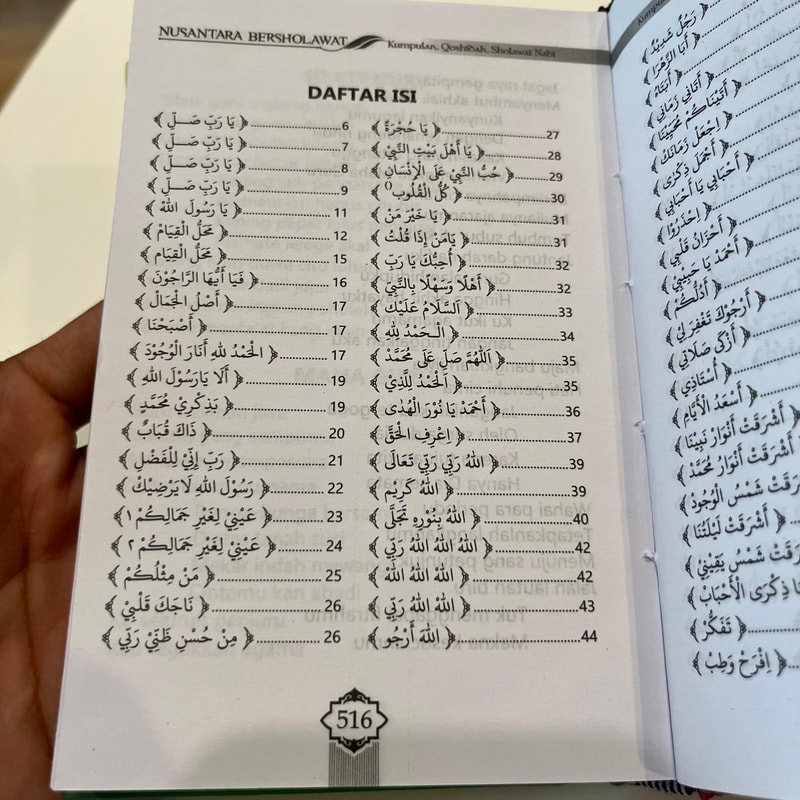 NUSANTARA BERSHOLAWAT
Kumpulan Qoshidah Sholawat Nabi
DAFTAR ISI
﴿ يَا رَبِّ صَـلِّ ﴾ 6
﴿ يَا رَبِّ صَـلِّ ﴾ 7
﴿ يَا رَبِّ صَـلِّ ﴾ 8
﴿ يَا رَبِّ صَـلِّ ﴾ 9
﴿ يَا رَسُولَ اللهْ ﴾ 11
﴿ مَحَلُّ الْقِيَامْ ﴾ 12
﴿ مَحَلُّ الْقِيَام ﴾ 15
﴿ فَيَا أَيُّهَا الرَّاجُوْنَ ﴾ 16
﴿ أَصْلُ الْجَمَالْ ﴾ 17
﴿ أَصْبَحْنَا ﴾ 17
﴿ الْحَمْدُ لِلهِ أَنَارَ الْوُجُودَ ﴾ 17
﴿ أَلَا يَارَسُوْلَ اللهِ ﴾ 19
﴿ بَذِكْرِيْ مُحَمَّدٍ ﴾ 19
﴿ ذَاكَ قُبَابٌ ﴾ 20
﴿ رَبِّ اِنِّيْ لِلْفَضْلِ ﴾ 21
﴿ رَسُوْلَ اللهِ لَايَرْضِيْكَ ﴾ 22
﴿ عَيْنِيْ لِغَيْرِ جَمَالِكُمْ ١ ﴾ 23
﴿ عَيْنِيْ لِغَيْرِ جَمَالِكُمْ ٢ ﴾ 24
﴿ مَنْ مِثْلُكُمْ ﴾ 25
﴿ نَاجَكَ قَلْبِيْ ﴾ 26
﴿ مِنْ حُسْنِ ظَنِّيْ رَبِّي ﴾ 26
﴿ يَا حُجْرَةً ﴾ 27
﴿ يَا أَهْلَ بَيْتِ النَّبِيْ ﴾ 28
﴿ حُبُّ النَّبِيْ عَلَى الْاِنْسَانِ ﴾ 29
﴿ كُلُّ الْقُلُوبِ ﴾ 30
﴿ يَا خَيْرَ مَنْ ﴾ 31
﴿ يَامَنْ إِذَا قُلْتُ ﴾ 31
﴿ أُحِبُّكَ يَا رَبِّ ﴾ 32
﴿ أَهْلًا وَسَهْلًا بِالنَّبِيْ ﴾ 32
﴿ اَلسَّلَامُ عَلَيْكَ ﴾ 33
﴿ الْـحَمْدُ لِلهِ ﴾ 34
﴿ اَللّٰهُمَّ صَلِّ عَلَى مُحَمَّدْ ﴾ 35
﴿ اَلْحَمْدُ لِلَّذِيْ ﴾ 35
﴿ أَحْمَدْ يَا نُوْرَ الْهُدَى ﴾ 36
﴿ اِعْرِفِ الْحَقَّ ﴾ 37
﴿ اللهُ رَبِّي رَبِّي تَعَالَى ﴾ 39
﴿ اللهُ كَرِيْم ﴾ 39
﴿ اللهُ بِنُوْرِهِ تَجَلَّى ﴾ 40
﴿ اللهُ اللهُ اللهُ رَبِّيْ ﴾ 42
﴿ اللهُ اللهُ اللهُ ﴾ 42
﴿ اللهُ اللهُ رَبِّيْ ﴾ 43
﴿ اللهَ أَرْجُو ﴾ 44
516
﴿ رَجُلٌ شَدِيْدٌ ﴾
﴿ أَبَا الزَّهْرَا ﴾
﴿ أَبَتَاهُ ﴾
﴿ أَتَانِي زَمَانِي ﴾
﴿ أَتَيْنَاكُمْ مُحِبِّيْنَا ﴾
﴿ اِجْعَلْ زَمَانَكَ ﴾
﴿ أَجْمَل ذِكْرَى ﴾
﴿ أَحْبَابِي يَا أَحْبَابِي ﴾
﴿ اِحْذَرُوْا ﴾
﴿ أَحْزَانُ قَلْبِي ﴾
﴿ أَحْمَدْ يَا حَبِيْبِيْ ﴾
﴿ أَدُلُّكُمْ ﴾
﴿ أَرْجُوكَ تَغْفِرْ لِي ﴾
﴿ أَزْكَى صَلَاتِي ﴾
﴿ أُسْتَاذِي ﴾
﴿ أَسْعَدُ الْأَيَّامِ ﴾
﴿ أَشْرَقَتْ أَنْوَارُ نَبِيِّنَا
﴿ أَشْرَقَتْ أَنْوَارُ مُحَمَّدْ
﴿ أَشْرَقَتْ شَمْسُ الْوُجُودْ
﴿ أَشْرَقَتْ لَيْلَتُنَا
شْرَقَتْ شَمْسُ يَقِيْنِيْ ﴾
ذِكْرَى الْأَحْبَابْ ﴾
﴿ تَفَكَّرْ ﴾
﴿ اِفْرَحْ وَطِبْ ﴾